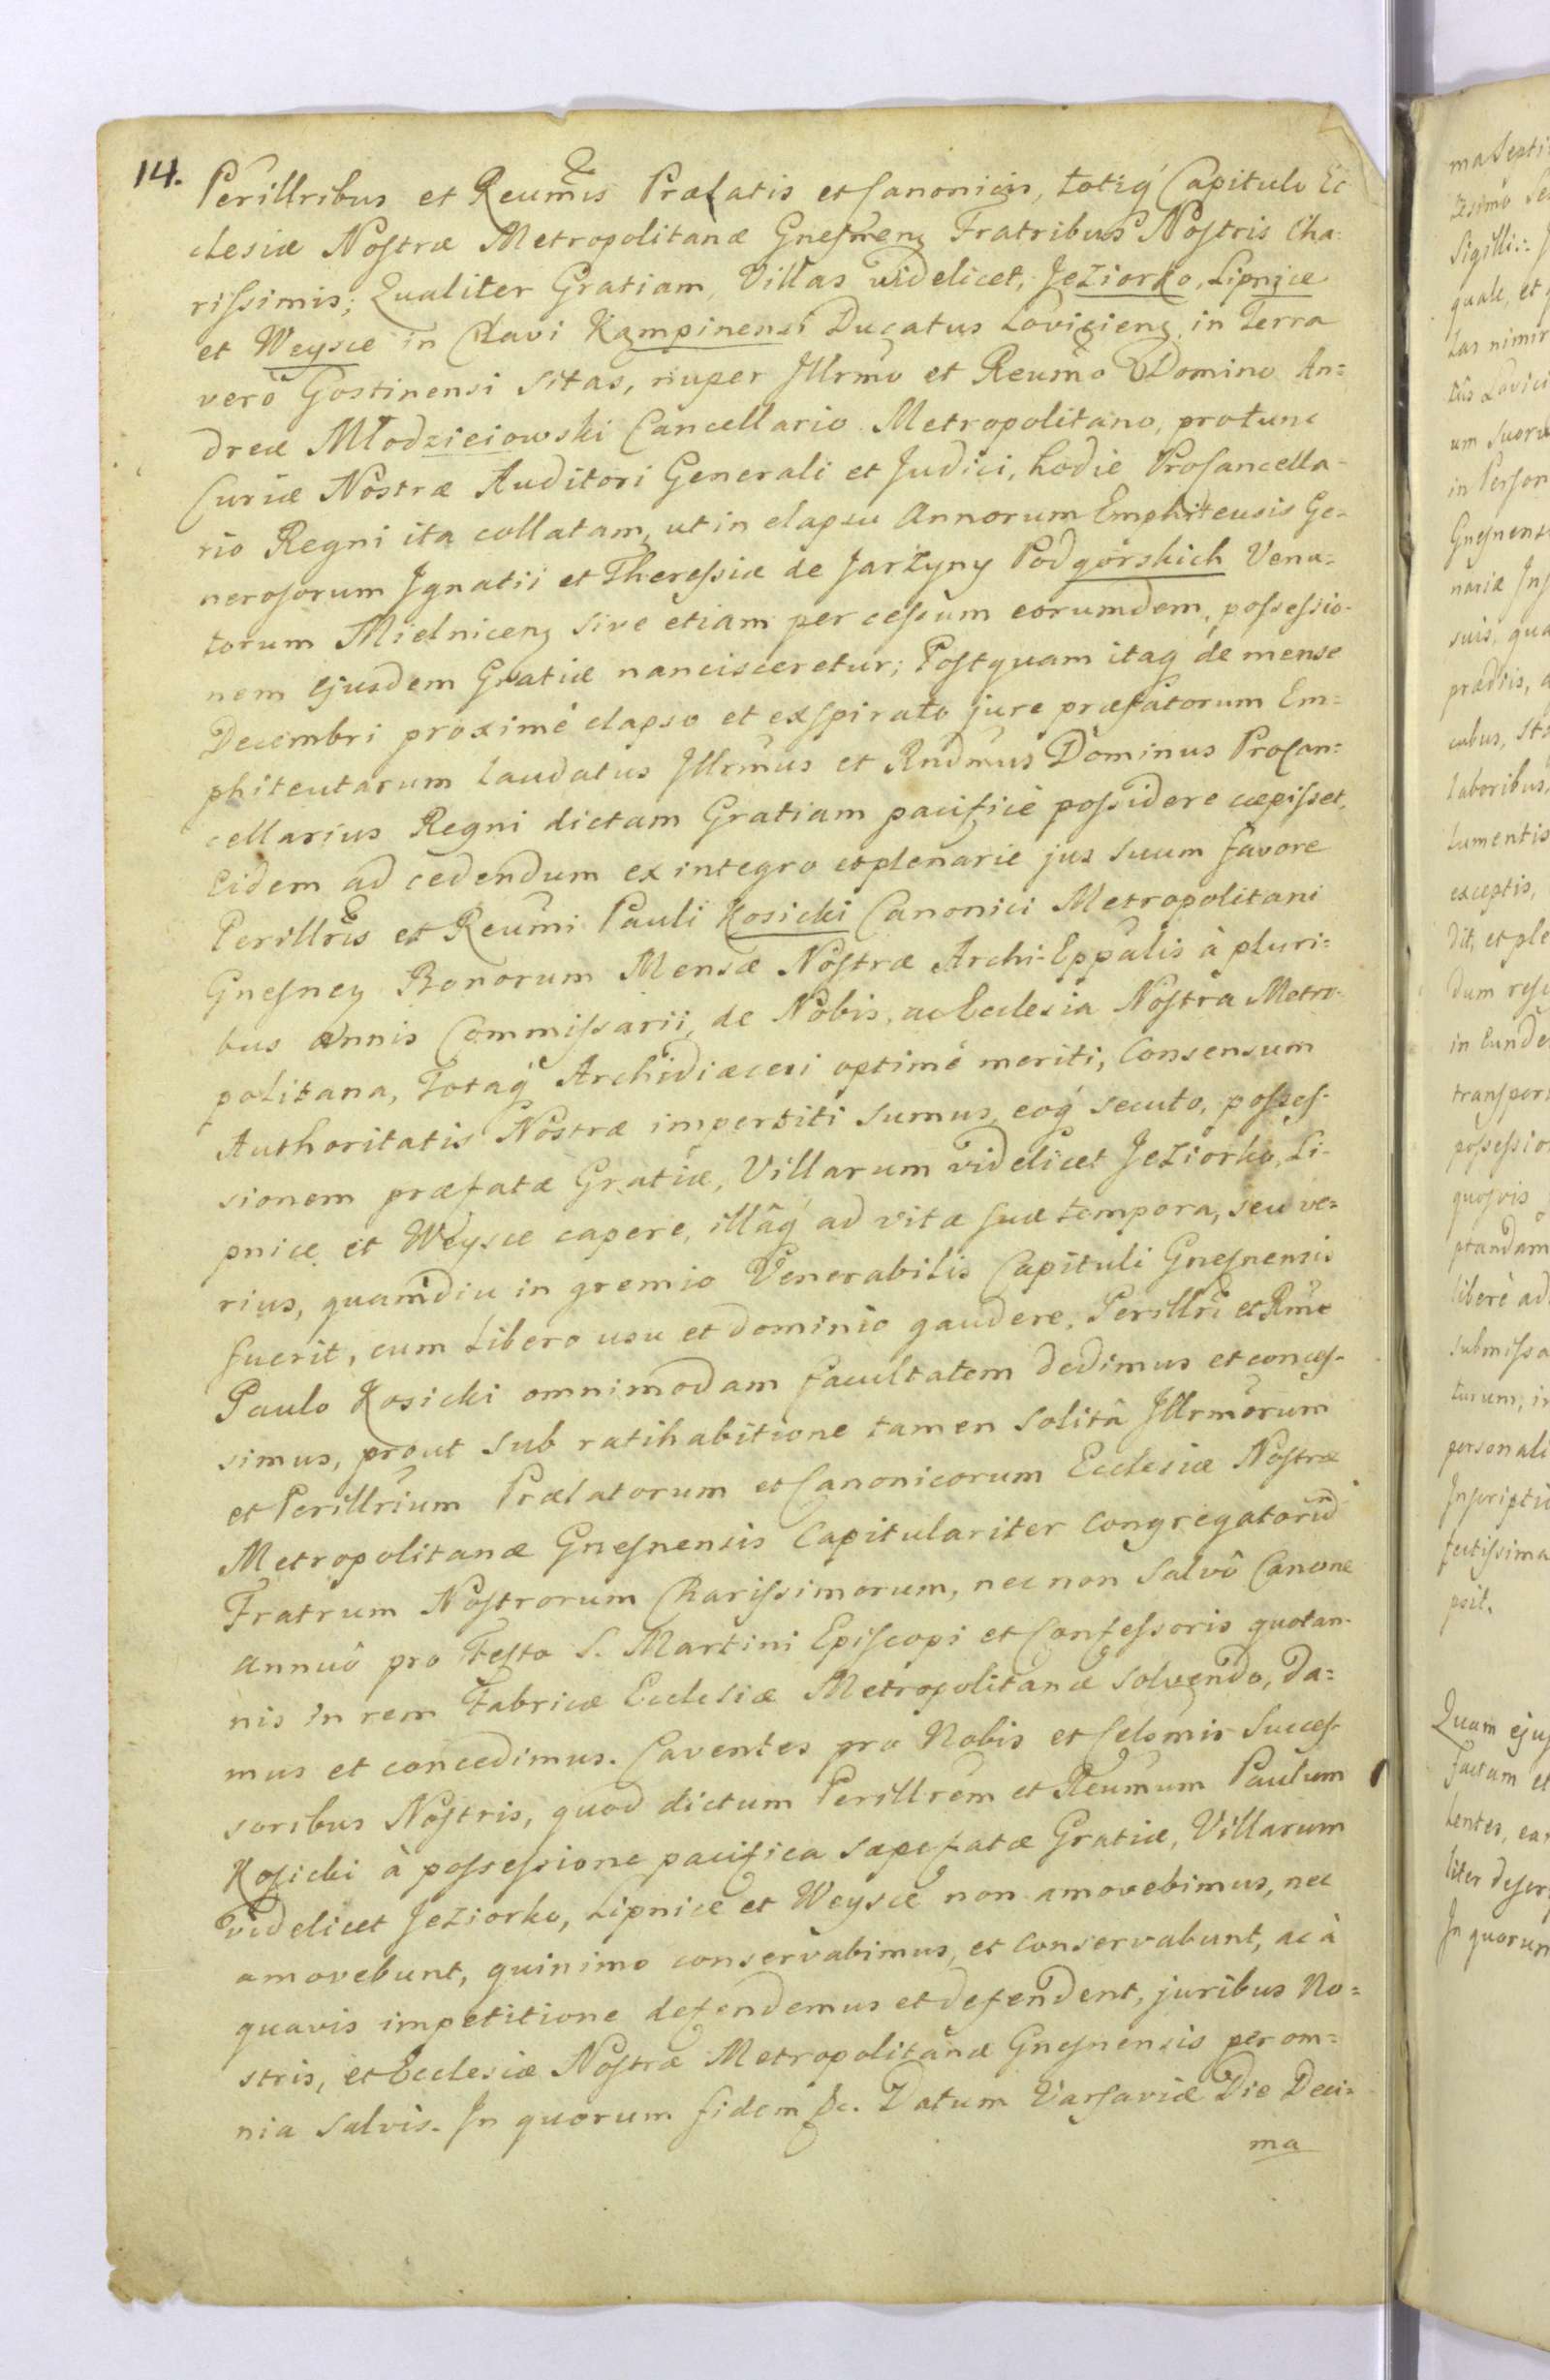 14.
Perillribus et Reumis Prælatis et Canonicis, totiq́ Capitulo Ec
clesiæ Nostræ Metropolitanæ Gnesnens Fratribus Nostris Cha-
rissimis; Qualiter Gratiam, Villas videlicet, Jeziorko, Lipnice
et Weysce in Clavi Kampinensi Ducatus Loviciens in Terra
verò Gostinensi sitas, nuper Illrmo et Reumo Domino An=
dreæ Młodzieiowski Cancellario Metropolitano, protunc
Curiæ Nostræ Auditori Generali et Judici, hodie Procancella-
rio Regni ita collatam, ut in elapsu Annorum Emphiteusis Ge-
nerosorum Ignatii et Theressiæ de Jarżyny Podgorskich Vena=
torum Mielnicens sive etiam per cessum eorumdem, possessio-
nem ejusdem Gratiæ nancisceretur; Postquam itaq de mense
Decembri proximè elapso et exspirato jure præfatorum Em=
phiteutarum laudatus Illrmus et Rndmus Dominus Procan=
cellarius Regni dictam Gratiam pacificè possidere cæpisset,
Eidem ad cedendum ex integro et plenarie jus suum favore
Perillris et Reumi Pauli Kosicki Canonici Metropolitani
Gnesnen Bonorum Mensæ Nostræ Archi-Eppalis à pluri=
bus annis Commissarii, de Nobis, ac Ecclesia Nostra Metro-
politana, Totaq́ Archidiæcesi optimè meriti, Consensum
Authoritatis Nostræ impertiti sumus, eoq́ secuto, posses-
sionem præfatæ Gratiæ, Villarum videlicet Jeziorko, Li-
pnice et Weysce capere, illâq́ ad vitæ suæ tempora, seu ve=
rius, quamdiu in gremio Venerabilis Capituli Gnesnensis
fuerit, cum libero usu et dominio gaudere, Perillri et Rmo
Paulo Kosicki omnimodam facultatem dedimus et conces-
simus, prout sub ratihabitione tamen solitâ Illrmorum
et Perillrium Prælatorum et Canonicorum Ecclesiæ Nostræ
Metropolitanæ Gnesnensis Capitulariter Congregatorũ
Fratrum Nostrorum Charissimorum, nec non salvô Canone
annuô pro Festo S. Martini Episcopi et Confessoris quotan-
nis in rem Fabricæ Ecclesiæ Metropolitanæ solvendo, da=
mus et concedimus. Caventes pro Nobis et Celsmis Succes-
soribus Nostris, quod dictum Perillrem et Reumum Paulum
Kosicki à possessione pacifica sæpefatæ Gratiæ, Villarum
videlicet Jeziorko, Lipnice et Weysce non amovebimus, nec
amovebunt, quinimo conservabimus, et conservabunt, ac à
quavis impetitione defendemus et defendent, juribus No=
stris, et Ecclesiæ Nostræ Metropolitanæ Gnesnensis per om=
nia salvis. In quorum fidem &c. Datum Varsaviæ Die Deci=
ma
ma Septi
Sigilli:
quale, et
las nimir
um suoru
in Person
Gnesnens
nariæ
suis, qua
prædiis,
laboribus,
exceptis,
dit, et ple
in Eunde
transpor
possessio
quosvis
ptandam
liberè ad
submissa
turum, in
personali
Inscripti
fectissima
psit.
Quam ejus
factam et
In quorum